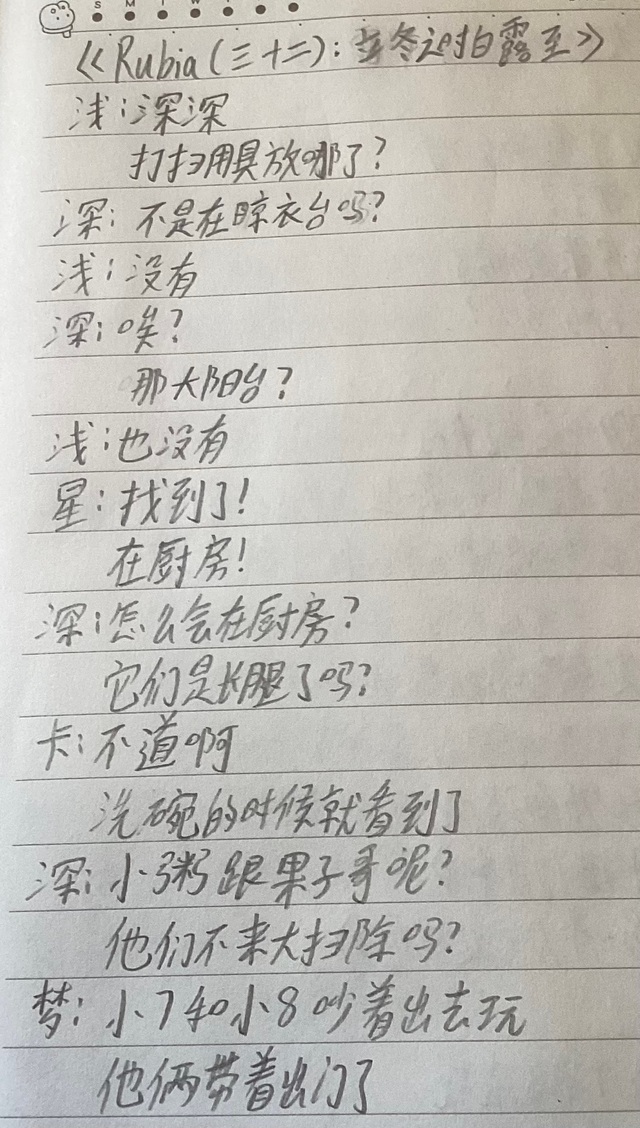 S M T W T
《Rubia(三十二):立冬之时白露至》
浅:深深
打扫用具放哪了?
深:不是在晾衣台吗?
浅:没有
深:唉?
那大阳台?
浅:也没有
星:找到了!
在厨房!
深:怎么会在厨房?
它们是长腿了吗?
卡:不道啊
洗碗的时候就看到了
深:小粥跟果子哥呢?
他们不来大扫除吗?
梦:小7和小8吵着出去玩
他俩带着出门了